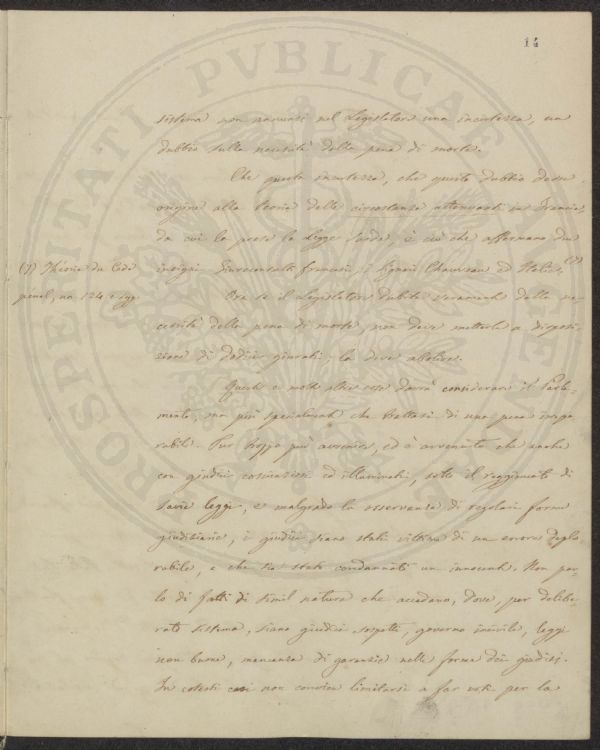 14
sistema non ravvisi nel Legislatore una incertezza, un
dubbio sulla necessità della pena di morte.
Che questa incertezza, che questo dubbio desse
origine alla teoria delle circostanze attenuanti in Francia,
da cui la prese la Legge Sarda, è ciò che affermano due
insigni Giureconsulti francesi, i Signori Chauveau ed Hélie. (7)
(7) Théorie du Code
pénal, no 124 e sgg.
Ora se il Legislatore dubita veramente della ne-
cessità della pena di morte, non deve metterla a disposi-
zione di dodici giurati; la deve abolire.
Queste e molte altre cose dovrà considerare il Parla-
mento, ma più specialmente che trattasi di una pena irrepa-
rabile. Pur troppo può avvenire, ed è avvenuto che anche
con giudici coscienziosi ed illuminati, sotto il reggimento di
savie leggi, e malgrado la osservanza di regolari forme
giudiziarie, i giudici siano stati vittima di un errore deplo-
rabile, e che sia stato condannato un innocente. Non par-
lo di fatti di simil natura che accadano, dove, per delibe-
rato sistema, siano giudici sospetti, governo incivile, leggi
non buone, mancanza di garanzie nelle forme dei giudizi.
In cotesti casi non convien limitarsi a far voti per la
PROSPERITATI PVBLICAE